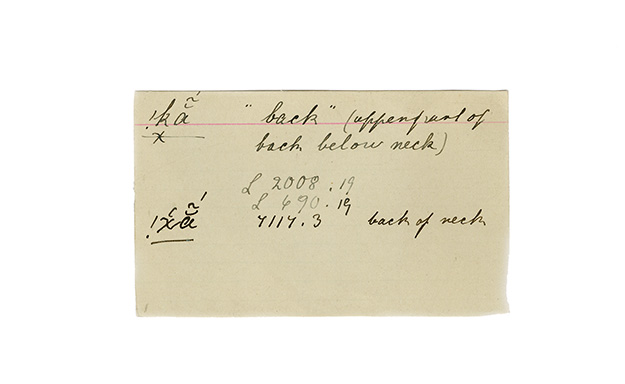 !kã́̆ "back" (upper part of
x back below neck)
L 2008.19
L 690.19
!x́ã́̆ 7117.3 back of neck